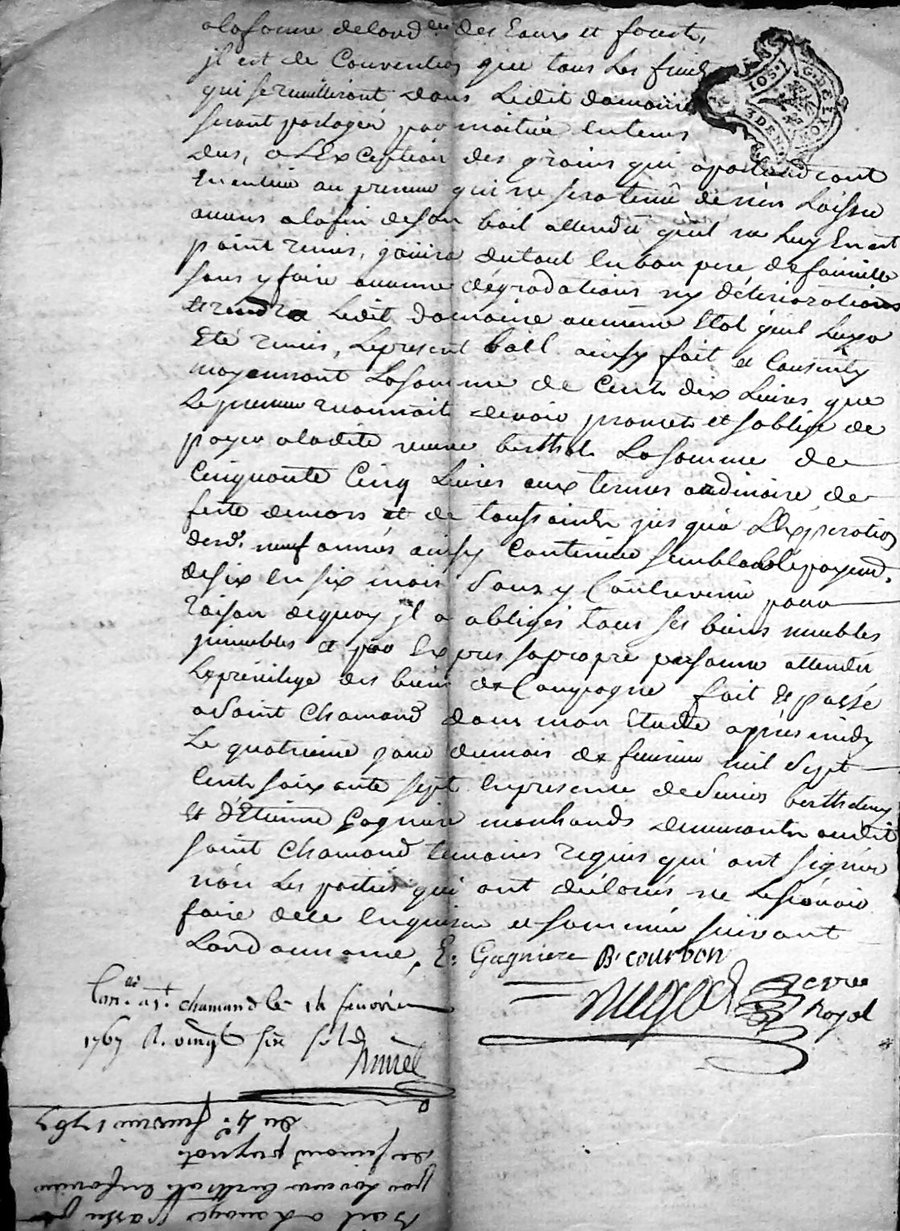 a la forme de lord.ce des Eaux et forest,
jl est de Convention que tous Les fruits
qui se ceuilliront dans Ledit domaine
seront partager par moitiée Entens
dus, a L'Exception des grains qui apartiendront
En entier au preneur qui ne sera tenû de rien Laisser
aucuns a la fin de son bail attendû qu'il ne Luy En est
point remis, jouira du tout En bon pere de famille
sans y faire aucune dégradations ny détériorations
et rendra Ledit domaine au meme Etat qu'il Luy a
Eté remis, Le present bail ainsy fait et Consenty
moyennant La somme de Cent dix Livres que
Le preneur reconnoit devoir promet et s'oblige de
payer a ladite veuve berthol La somme de
Cinquante Cinq Livres aux termes ordinaire de
feste de mars et de toussaints jusqu'a L'Expiration
desd. neuf années ainsy Continuer semblable payemt.
de six En six mois sans y Contrevenir pour
raison de quoy jl a obliges tous ses biens meubles
jmmeubles et par Expres sa propre personne attendu
Le privilege des biens de Campagne fait et passé
a Saint Chamond dans mon Etude après midy
Le quatrieme jour du mois de fevrier mil Sept
Cent soixante sept En presence de
et d'Etienne Gagniere marchands demeurants audit
saint Chamond temoins requis qui ont signés
non Les parties qui ont déclarés ne Le sçavoir
faire de ce Enquises et sommées suivant
L'ordonnance, E: Gagniere B. courbon
no.re Royal
Con.lé a St. chamand le 14 fevrier
1767 R. vingt six sols
du 4e. fevrier 1767
Bail a Loyer passé